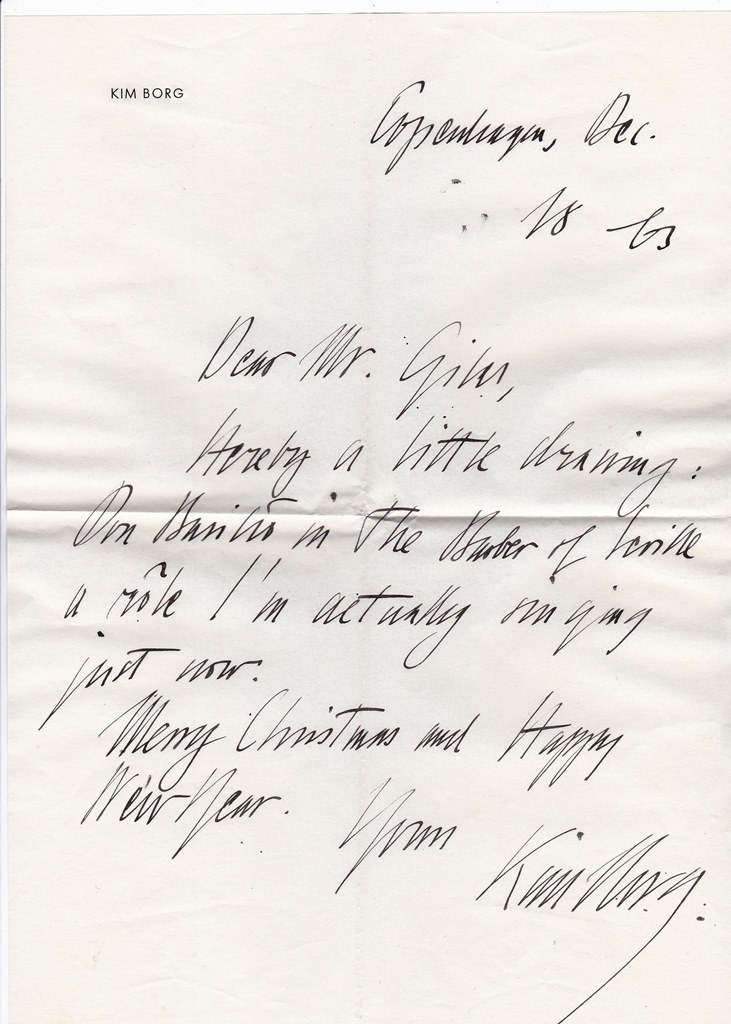 KIM BORG
Copenhagen, Dec.
18 63
Dear Mr. Giles,
Hereby a little drawing:
Don Basilio in The Barber of Seville
a rôle I'm actually singing
just now.
Merry Christmas and Happy
New Year.
Yours
Kim Borg.